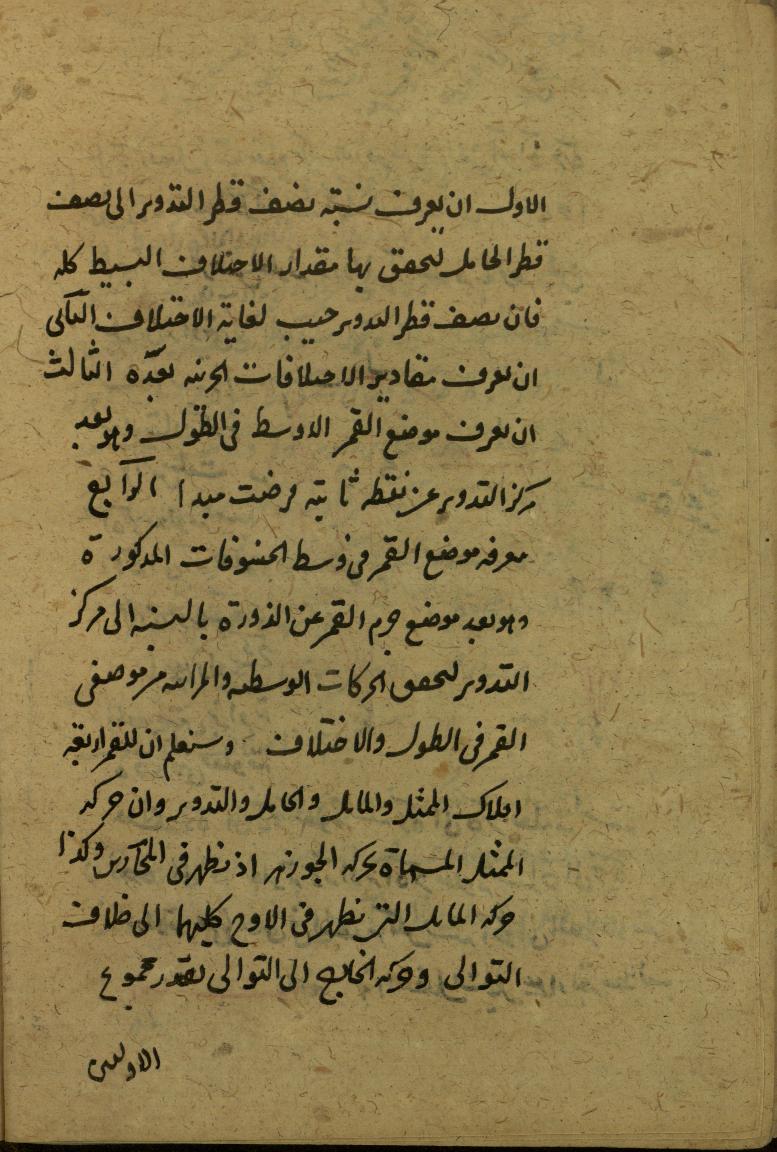 الاول ان يعرف نسبة نصف قطر التدوير الى نصف
قطر الحامل ليتحقق بها مقدار الاختلاف البسيط كله
فان نصف قطر التدوير جيب لغاية الاختلاف الثانى
ان يعرف مقادير الاختلافات الجزئية بعده الثالث
ان يعرف موضع القمر الاوسط فى الطول وهو بعد
مركز التدوير عن نقطة ثابتة فرضت مبدا الرابع
معرفة موضع القمر فى وسط الخسوفات المذكورة
وهو بعد موضع جرم القمر عن الذروة بالنسبة الى مركز
التدوير ليتحقق الحركات الوسطية من موضعى
القمر فى الطول والاختلاف وستعلم ان للقمر اربعة
افلاك الممثل والمايل والحامل والتدوير وان حركة
الممثل المسماة بحركة الجوزهر اذ تظهر فى وكذا
حركة المايل التى تظهر فى الاوج كليهما الى خلاف
التوالى وحركة الخارج الى التوالى بقدر مجموع
الاولين